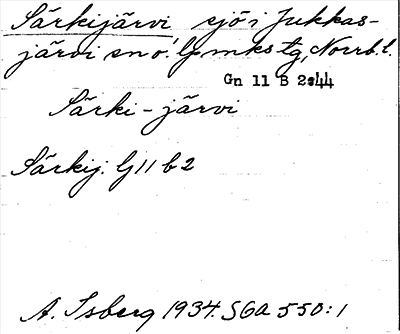 Särkijärvi sjö i Jukkas-
järvi sn o. lpmks tg, Norrb. l.
Gn 11 B 2:44
Särki-järvi
Särkij. G 11 b 2
A. Isberg 1934. SGA 550:1